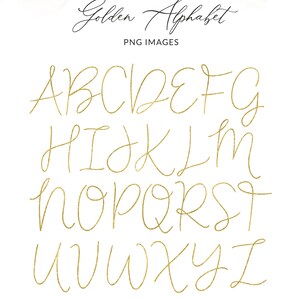 Golden Alphabet
PNG IMAGES
ABCDEFG
HIJKLM
NOPQRST
UVWXYZ